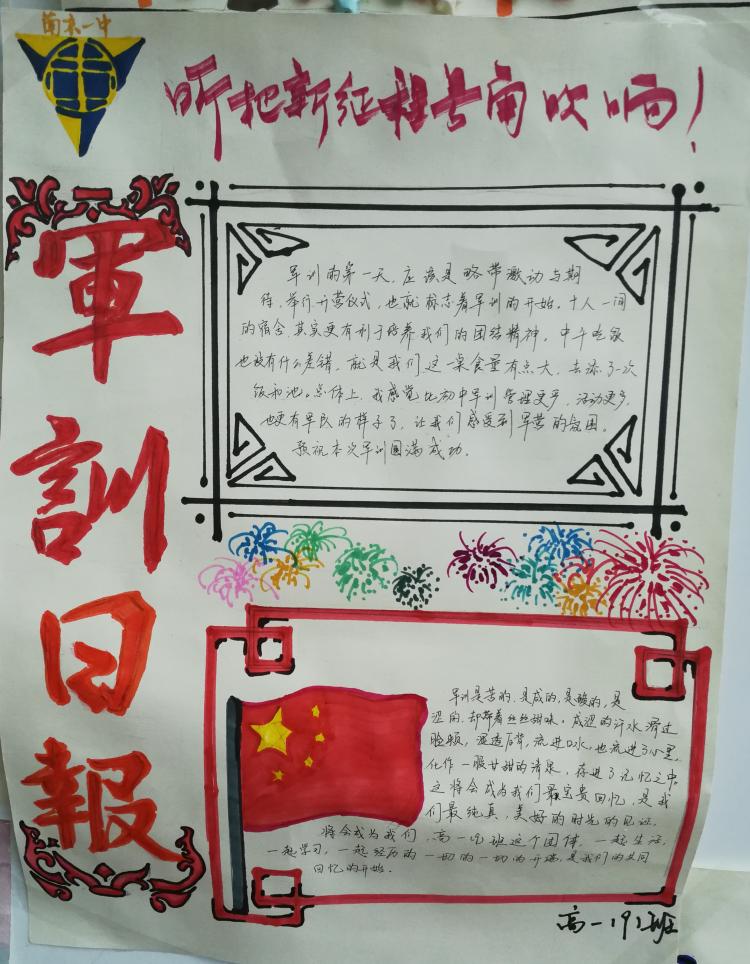 南京一中
听把新征程号角吹响！
軍訓日報
军训的第一天，应该是略带激动与期
待，举行开营仪式，也就标志着军训的开始。十人一间
的宿舍，其实更有利于培养我们的团结精神。中午吃饭
也没有什么差错，就是我们这一桌食量有点大，去添了一次
饭和池。总体上，我感觉比初中军训管理更多，活动更多，
也更有军民的样子了，让我们感受到军营的氛围。
预祝本次军训圆满成功。
军训是苦的，是咸的，是酸的，是
涩的，却带着丝丝甜味。咸涩的汗水滑过
脸颊，湿透后背，流进口水，也流进了心里，
化作一股甘甜的清泉，存进了记忆之中。
这将会成为我们最宝贵回忆，是我
们最纯真，美好的时光的见证。
将会成为我们，高一19班这个团体，一起生活，
一起学习，一起经历的一切的一切的开端，是我们的共同
回忆的开始。
高一19班